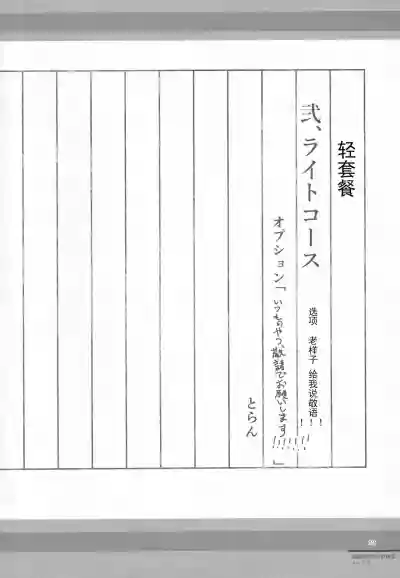 轻套餐
弐、ライトコース
选项 老样子 给我说敬语!!!
オプション「いつものやつ、敬語でお願いします!!!!!!!」
とらん